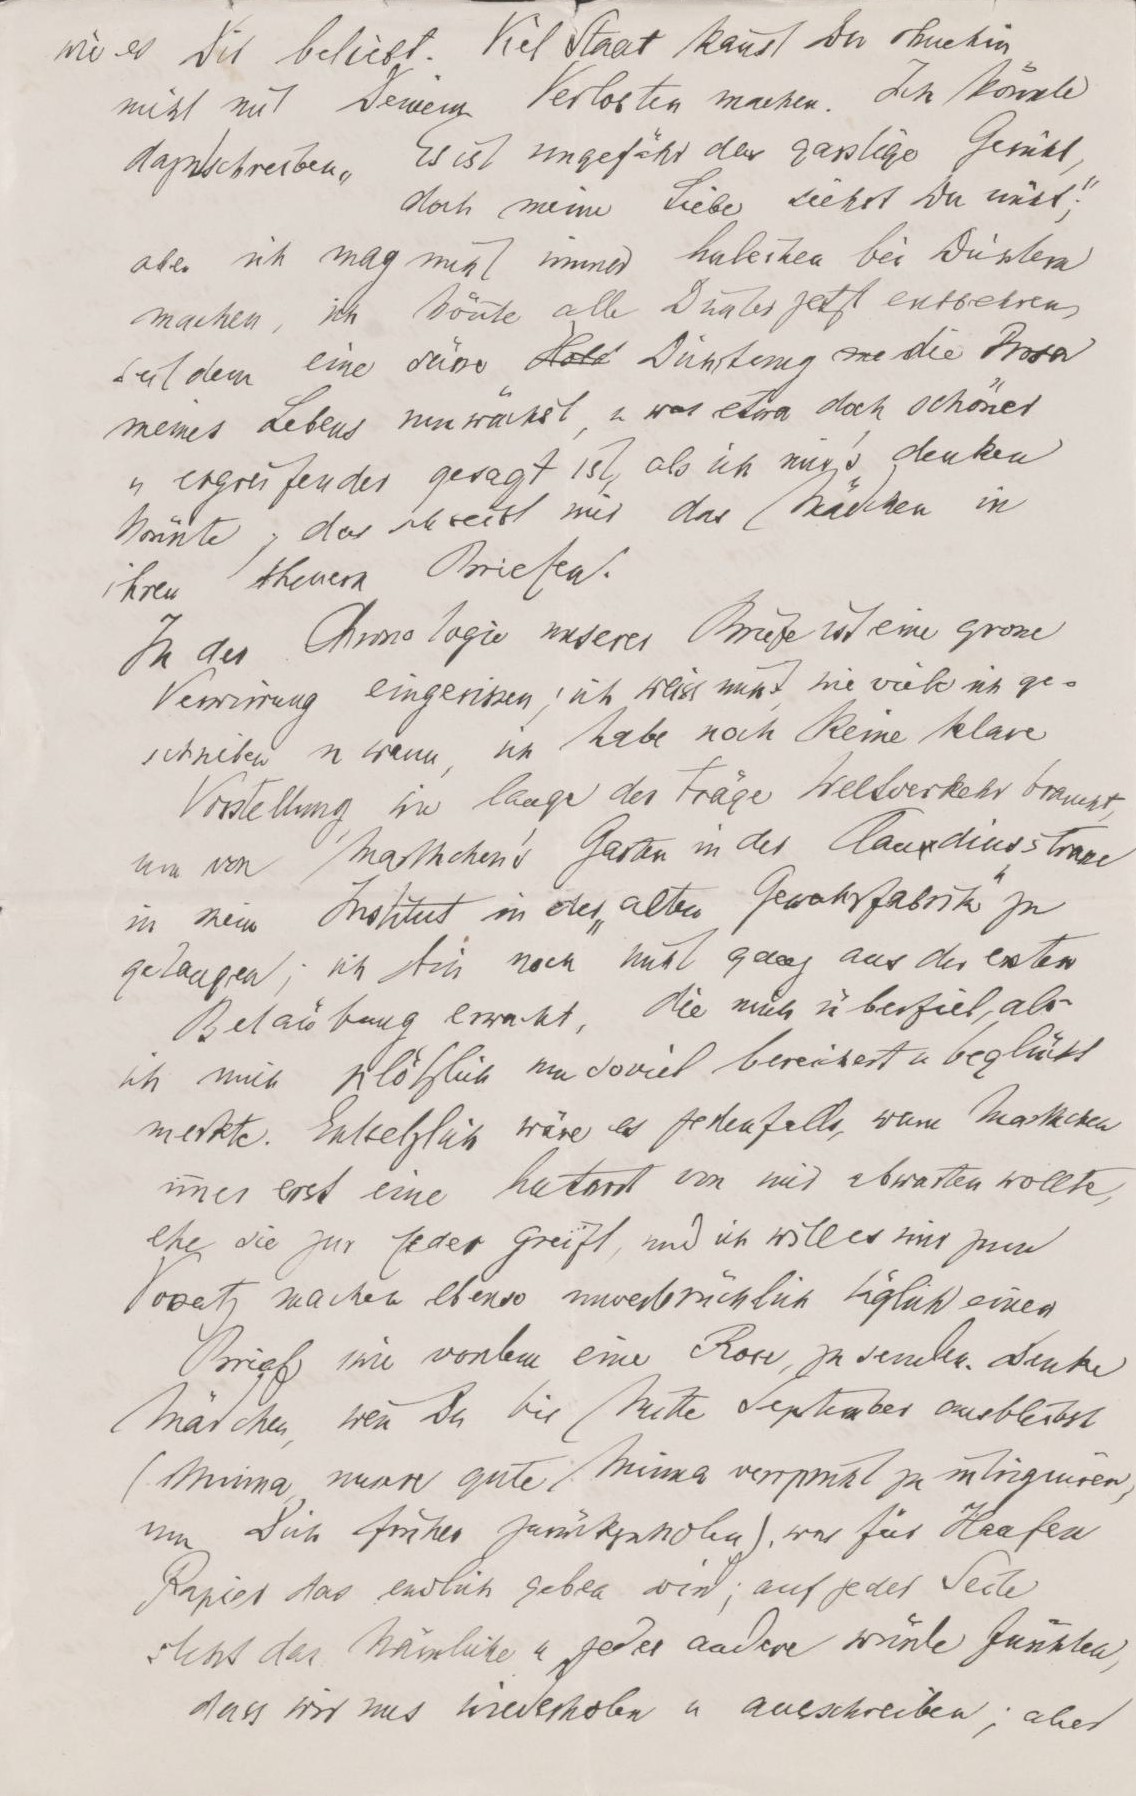 wie es Dir beliebt. Viel Staat kannst Du ohnehin
nicht mit Deinem Verlobten machen. Ich könnte
dazuschreiben „Es ist ungefähr das garstige Gesicht,
doch meine Liebe siehst Du nicht;"
aber ich mag nicht immer Anleihen bei Dichtern
machen, ich könnte alle Dichter jetzt entbehren,
seitdem eine süsse Dichtung die Prosa
meines Lebens umwächst, u was etwa doch schöner
u ergreifender gesagt ist, als ich mir's denken
könnte, das schreibt mir das Mädchen in
ihren theuern Briefen.
In der Chronologie unserer Briefe ist eine grosse
Verwirrung eingerissen; ich weiss nicht, wie viele ich ge-
schrieben u wann, ich habe noch keine klare
Vorstellung wie lange der träge Weltverkehr braucht,
um von Marthchen's Garten in der Claudiusstrasse
in mein Institut in der „alten Gewehrfabrik" zu
gelangen; ich bin noch nicht ganz aus der ersten
Betäubung erwacht, die mich überfiel, als
ich mich plötzlich um soviel bereichert u beglückt
merkte. Entsetzlich wäre es jedenfalls, wenn Marthchen
im̄er erst eine Antwort von mir abwarten wollte,
ehe sie zur Feder greift, und ich will es mir zum
Vorsatz machen ebenso unverbrüchlich täglich einen
Brief wie vordem eine Rose, zu senden. Denke
Mädchen, wen̄ Du bis Mitte September ausbleibst
(Minna, unsere gute Minna verspricht zu intriguiren,
um Dich früher zurückzuholen), was für Haufen
Papier das endlich geben wird; auf jeder Seite
steht das Nämliche u jeder andere würde fürchten,
dass wir uns wiederholen u ausschreiben; aber